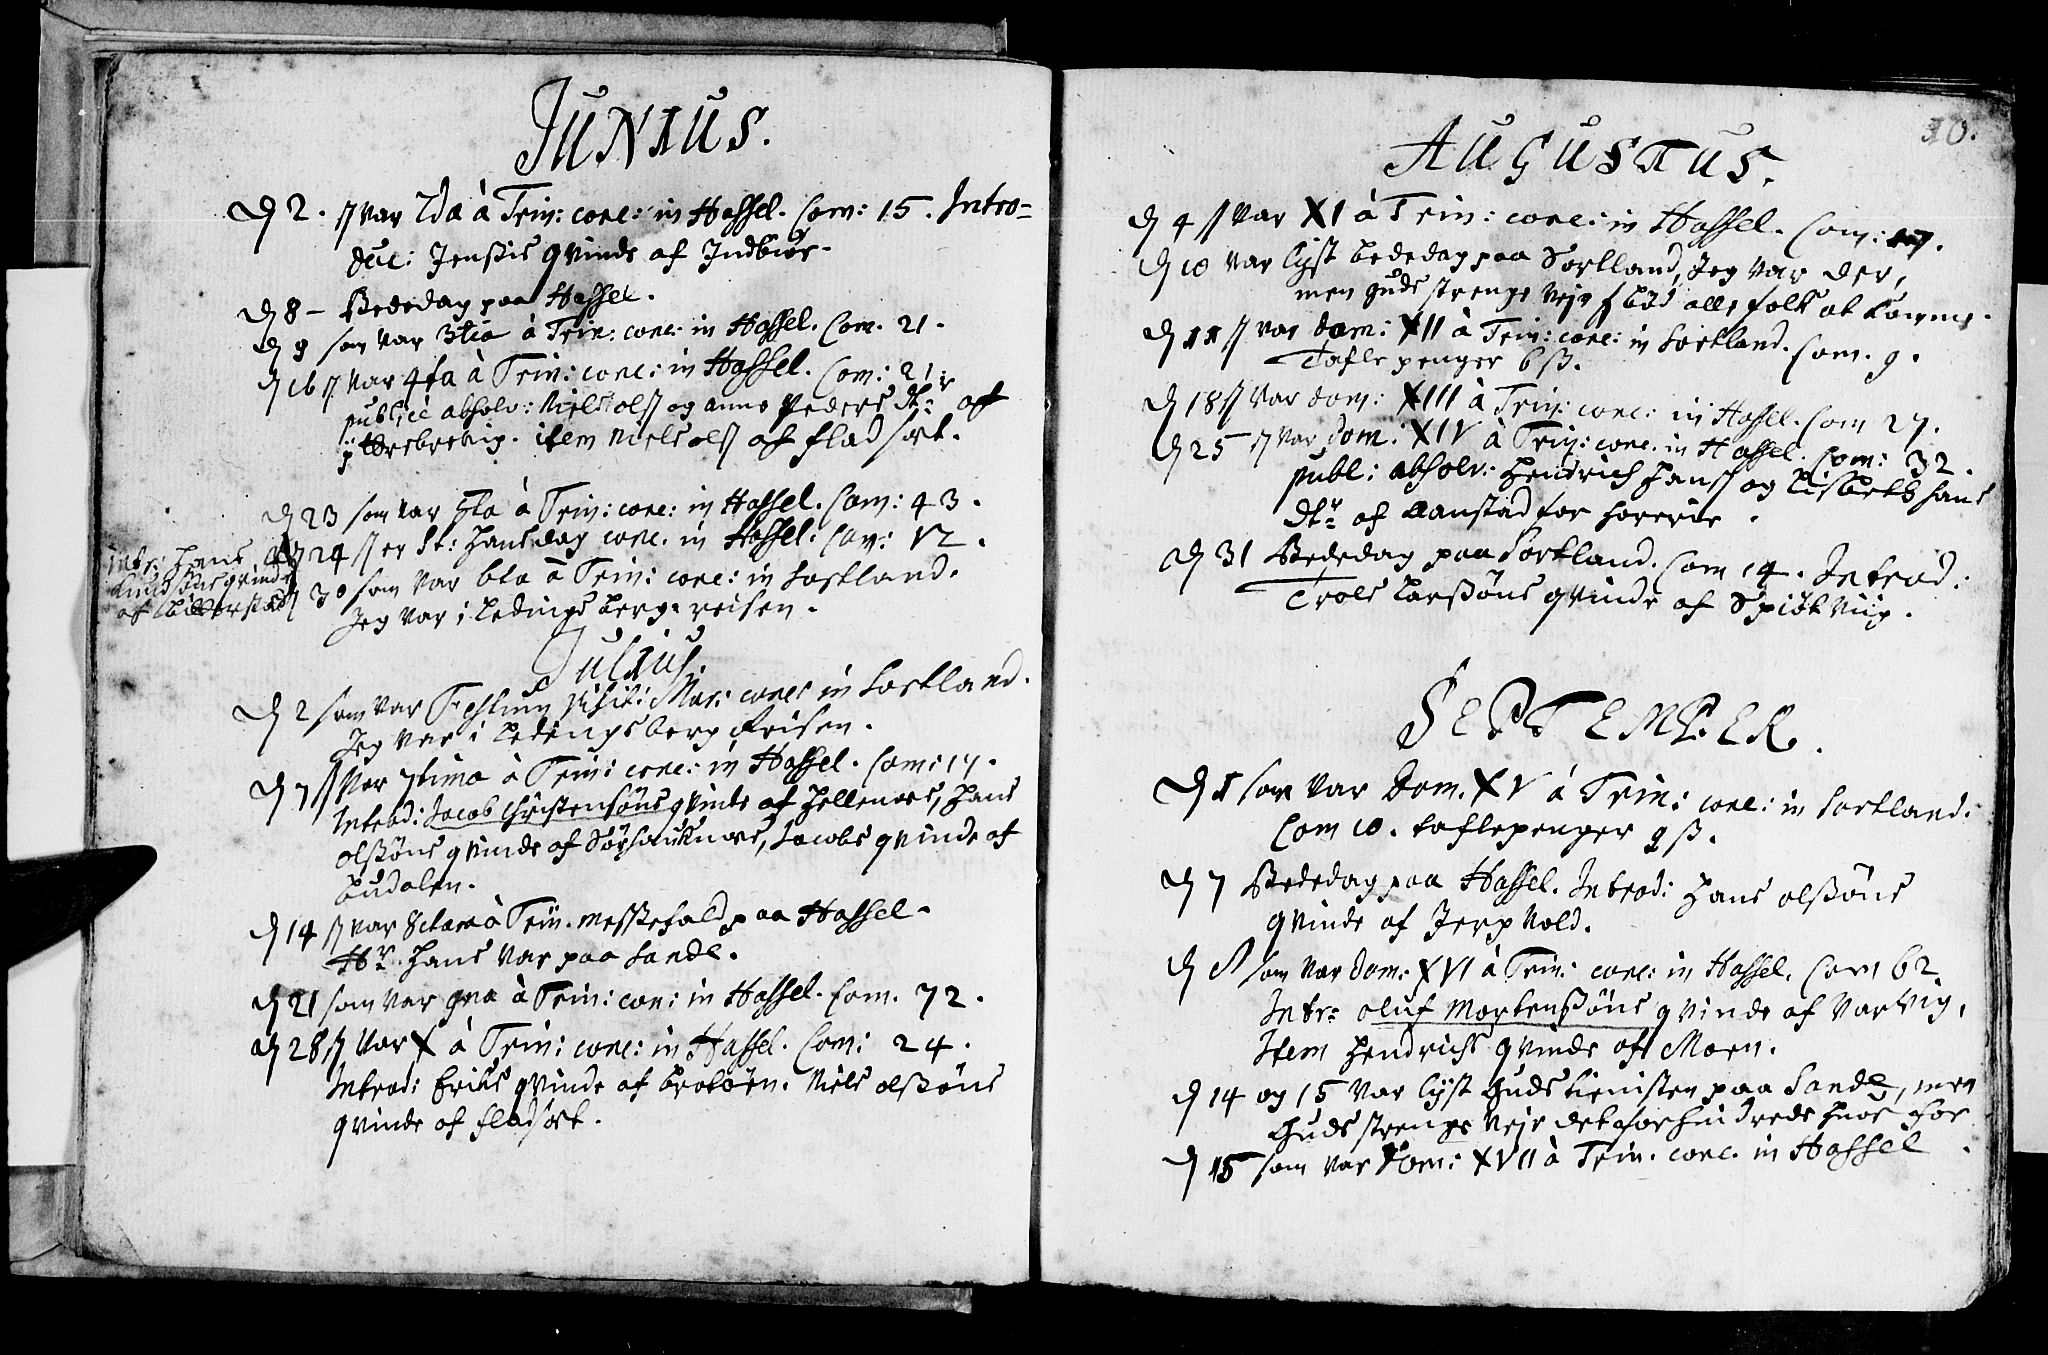 JUNIUS.
D 2. s var 2da à Trin: conc: in Hassel. Com: 15. Intro=
duc: Jensis qvinde af Indbiør.
D 8 - Bededag paa Hassel.
D 9 som var 3tia à Trin: conc: in Hassel. Com. 21.
D 16 s. var 4ta à Trin: conc: in Hassel. Com: 21.
publicè absolv: Niels ols og Anne Peders dtr af
item Niels ols af fladsæt.
D 23 som var 5ta à Trin: conc: in Hassel. Com: 43.
D 24 s er St: Hansdag conc. in Hassel. Com: 12.
intr: Hans
Knudsøns qvinde
af
D 30 som var 6ta à Trin: conc: in Sortland.
Jeg var i Ledings berg reisen.
Julius.
D 2 som var Festum visit: Mar: conc: in Sortland.
Jeg var i Ledingsberg Reisen.
D 7 s var 7tima à Trin: conc: in Hassel. Com: 17.
Introd: Jacob Christensøns qvinde af Hellenes, Hans
olssøns qvinde af, Jacobs qvinde af
Budalen.
D 14 s var 8ctava à Trin. messefald paa Hassel.
Hr. Hans var paa Lande.
D 21 som var 9na à Trin: con: in Hassel. Com. 72.
D 28 s var X à Trin: conc: in Hassel. Com: 24.
Introd: Eriks qvinde af Brotøen. Niels olssøns
qvinde af fladsæt.
10.
AUGUSTUS.
D 4 s var XI à Trin: conc: in Hassel. Com: 17.
D 10 var lyst bededag paa Sortland, Jeg var der,
men Guds strenge Vejr alle folk at komme.
D 11 s var dom: XII à Trin: conc: in Sortland. Com. 9.
Taflepenger 6 ß.
D 18 s var dom: XIII à Trin: conc: in Hassel. Com 27.
D 25 s var Dom: XIV à Trin: conc. in Hassel. Com: 32.
publ: absolv: Hendrich Hans og Lisbeth Hans
dtr af Aanstad for horerie.
D 31 Bededag paa Sortland. Com 14. Introd:
Trols Larssøns qvinde af Spiøtviig.
SEPTEMBER.
D 1 som var Dom. XV à Trin: conc: in Sortland.
Com 10. taflepenger 9 ß.
D 7 Bededag paa Hassel. Introd: Hans olssøns
qvinde af Jerpvold.
D 8 som var dom: XVI à Trin: conc: in Hassel. Com 62
Intr: oluf Mortenssøns qvinde af Varvig,
Item Hendrichs qvinde af Moen.
D 14 og 15 var lyst Guds tienisten paa Lande, men
Guds strenge vejr det forhindrede for
D 15 som var Dom: XVII à Trin. conc. in Hassel.